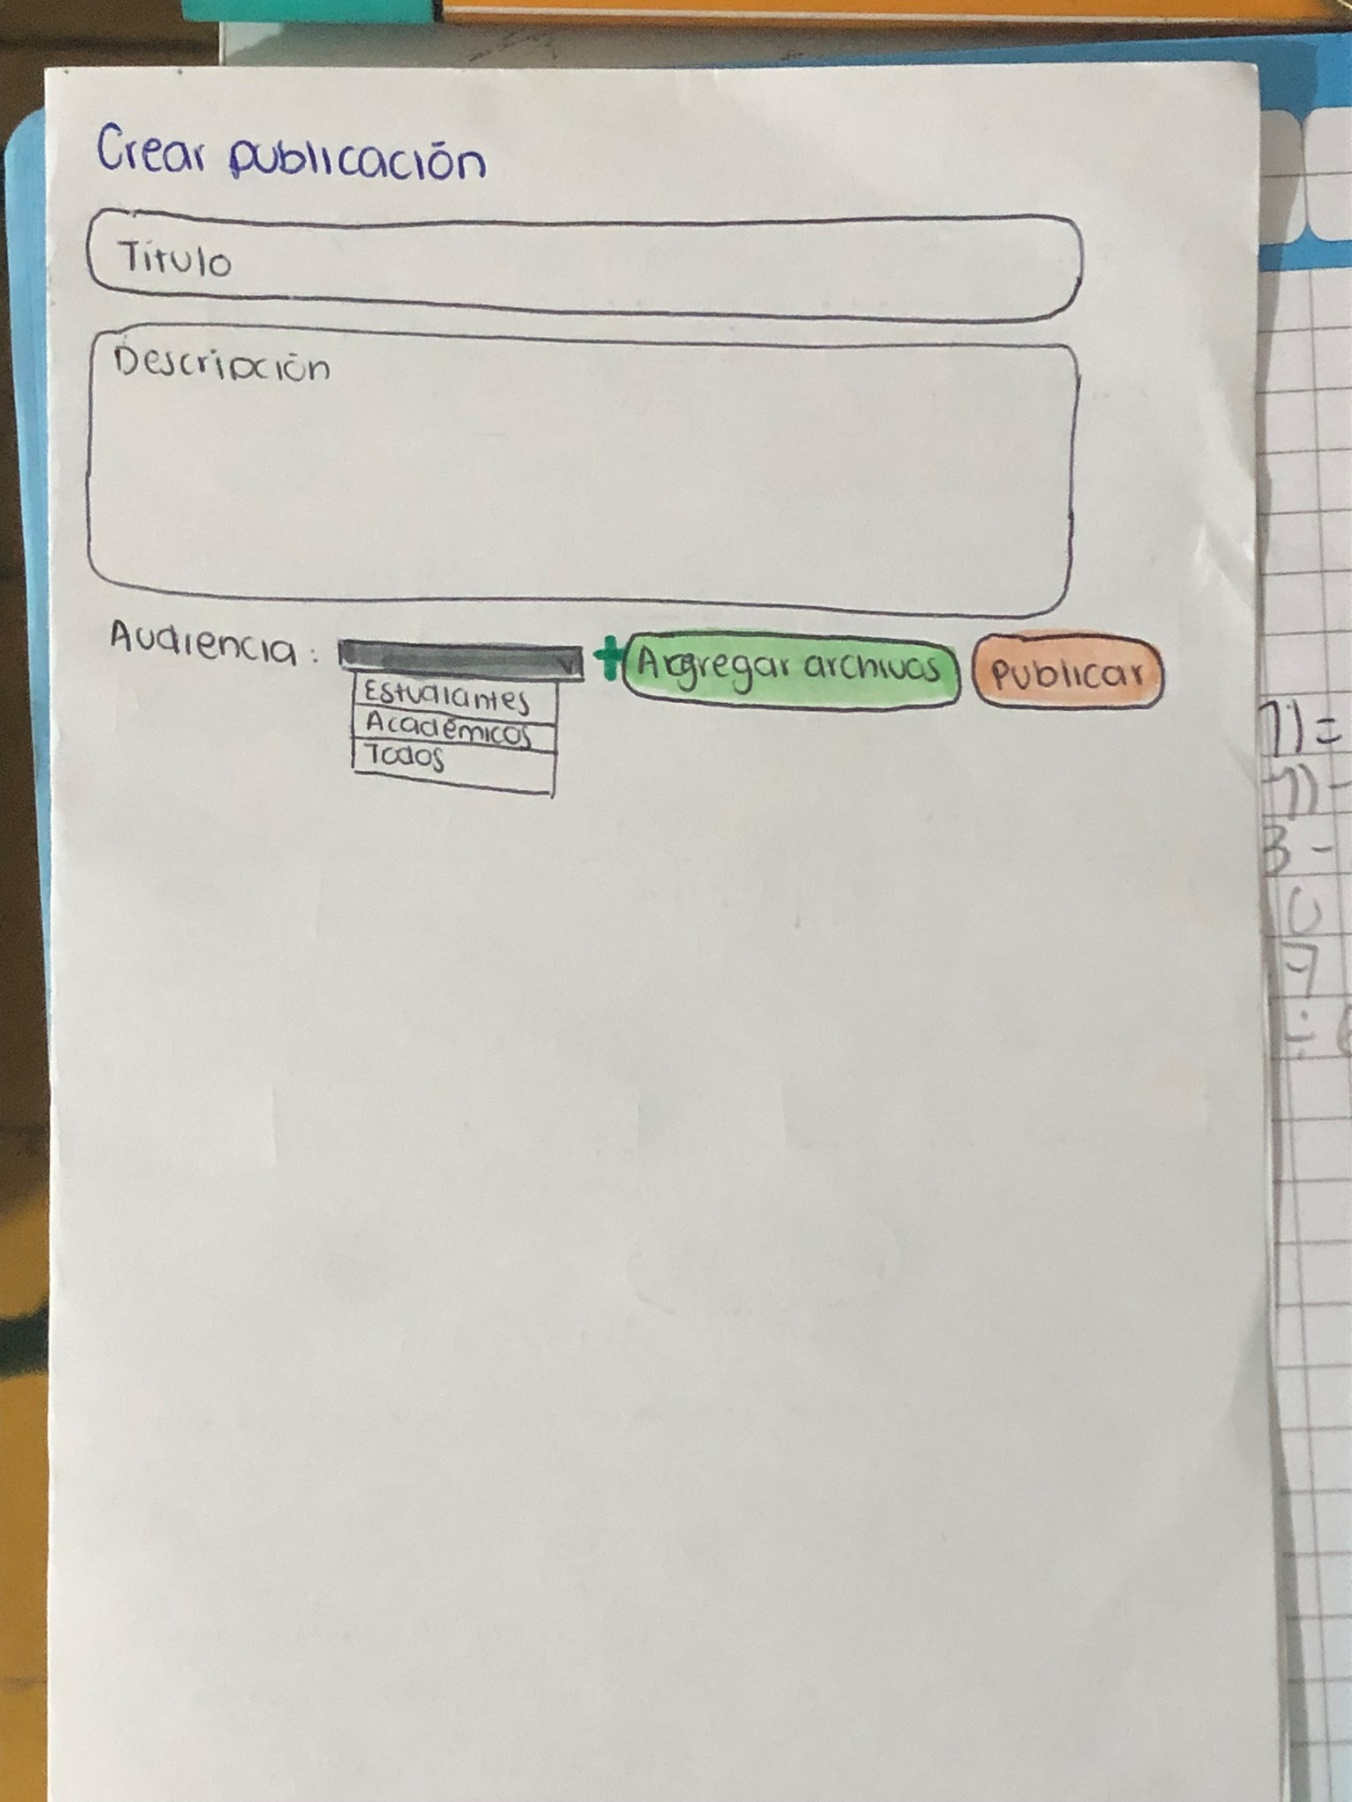 Crear publicación
Título
Descripción
Audiencia:
Estudiantes
Académicos
Todos
+ Argregar archivos
Publicar